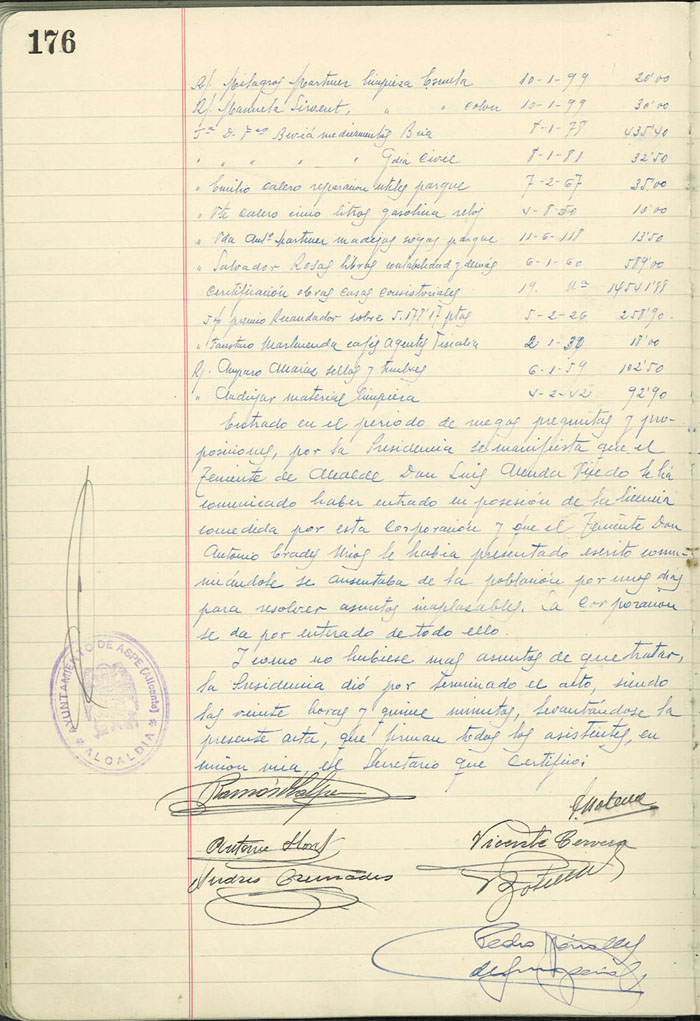 176
Rj. Milagros Martinez limpieza Escuela 10-1-99 20'00
Rj. Manuela Sirvent, " " color 10-1-99 30'00
Fra D. Fco Beviá medicamentos Bna 8-1-78 435'40
" " " " " Gdia Civil 8-1-81 32'50
" Emilio Calero reparación utiles parque 7-2-67 35'00
" Vte Calero cinco litros gasolina reloj 4-8-50 10'00
" Vda Antº Martinez madejas sogas parque 11-6-118 13'50
" Salvador Rosas libros contabilidad y demás 6-1-60 589'00
Certificación obras casas consistoriales 19. 14541'88
5% premio Recaudador sobre 5.178'17 ptas 5-2-26 258'90
" Faustino Marhuenda cafés Agentes Fiscalia 2-1-30 18'00
Rj. Amparo Alcaraz sellos y timbres 6-1-59 102'50
" material limpieza 4-2-42 92'90
Entrado en el periodo de ruegos preguntas y pro-
posiciones, por la Presidencia se manifiesta que el
Teniente de Alcalde Don Luis Pujedo le ha
comunicado haber entrado en posesión de la licencia
concedida por esta Corporación y que el Teniente Don
Antonio Cradey Mira le habia presentado escrito comu-
nicandole se ausentaba de la población por unos dias
para resolver asuntos inaplazables. La Corporación
se da por enterado de todo ello.
Y como no hubiese mas asuntos de que tratar,
la Presidencia dió por terminado el acto, siendo
las veinte horas y quince minutos, levantandose la
presente acta, que firman todos los asistentes, en
union mia, el Secretario que Certifico:
AYUNTAMIENTO DE ASPE (Alicante)
* ALCALDIA *
Ramón
Antonio
Vicente Cervera
Andres Cremades
Botella
Pedro